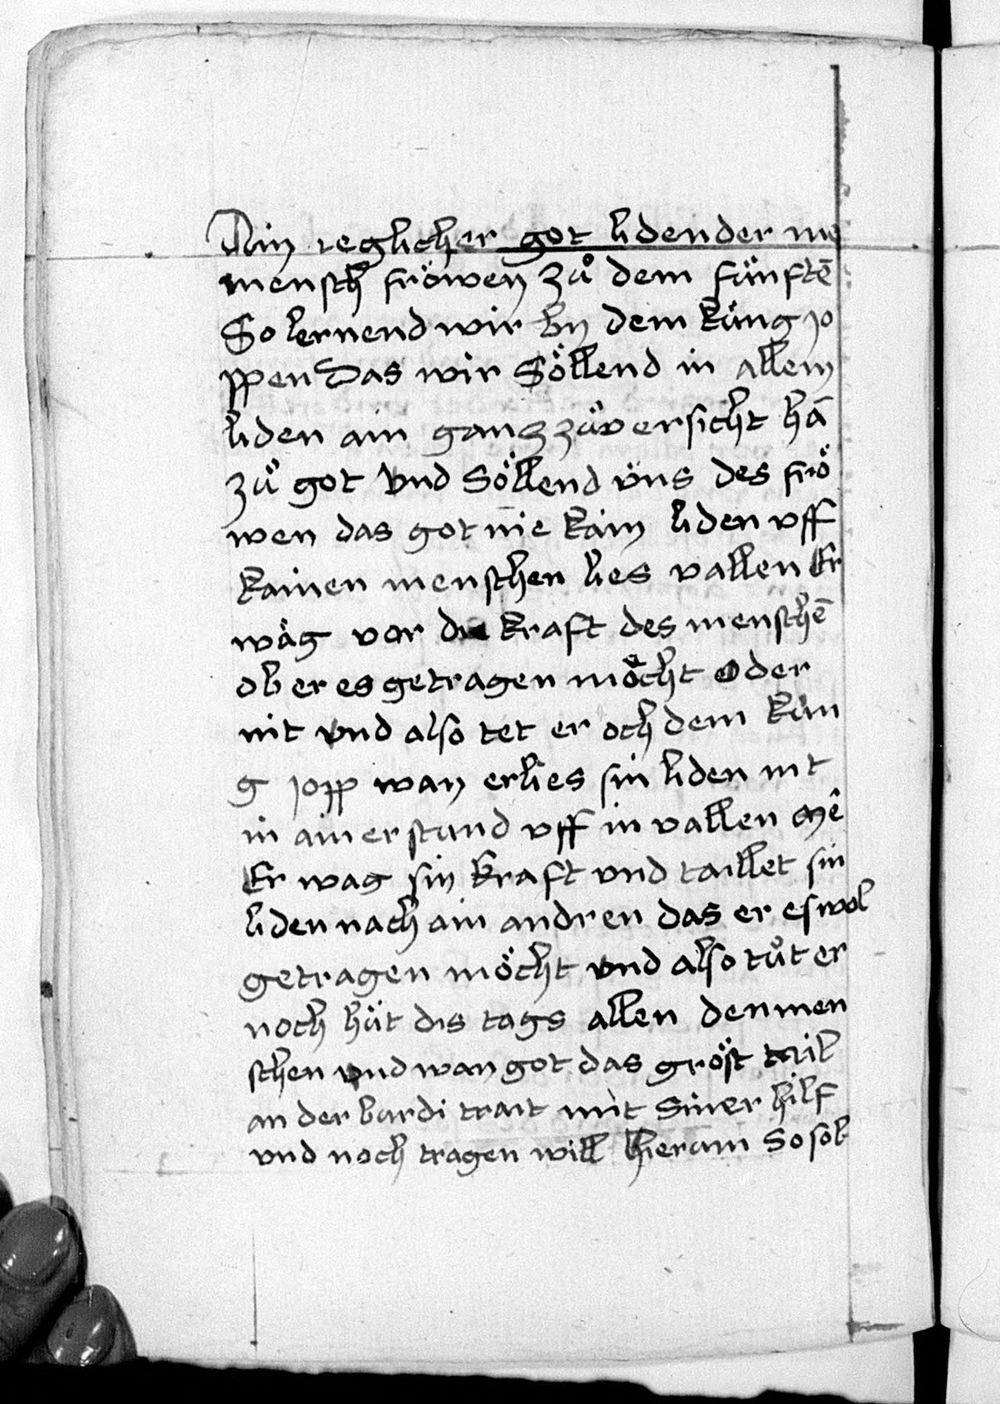 Ain ieglicher got lidender me
mensch fröwen zuͦ dem fünftē
So lernend wir by dem küng jo
ppen Das wir Söllend in allem
liden ain gancz zuͦversicht hā
zuͦ got vnd Söllend üns des frö
wen das got nie kain liden vff
kainen menschen lies vallen Er
wäg vor die kraft des menschē
ob er es getragen möcht oder
nit vnd also tet er och dem kün
g jopp wan er lies sin liden nit
in ainer stund vff in vallen mē
Er wag sin kraft vnd taillet sin
liden nach ain andren das er es wol
getragen möcht vnd also tuͦt er
noch hüt dis tags allen den men
schen vnd wan got das gröst tail
an der burdi trait mit Siner hilf
vnd noch tragen will hierum So sol